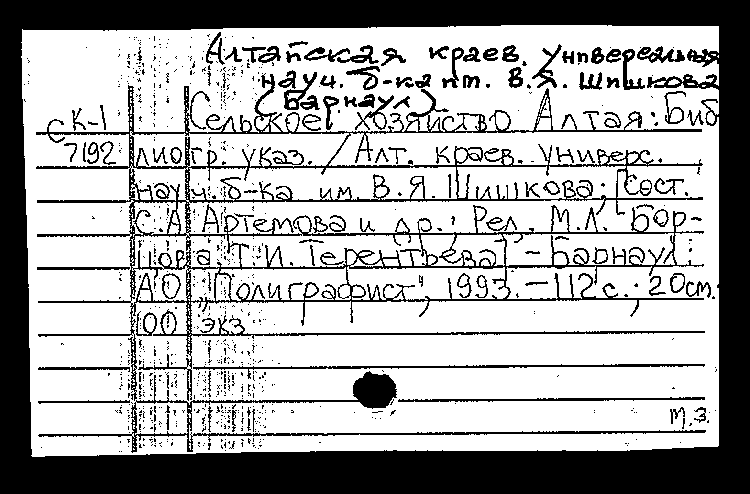 Алтайская краев. универсальная
науч. б-ка им. В.Я. Шишкова
(Барнаул)
СК-1
Сельское хозяйство Алтая: Биб
7192
лиогр. указ. / Алт. краев. универс.
науч. б-ка им. В.Я. Шишкова; [Сост.
С.А. Артемова и др.; Ред. М.Л. Бор-
цова, Т.И. Терентьева] - Барнаул:
А/О "Полиграфист", 1993. - 112 с.; 20 см.
100 экз
М.З.